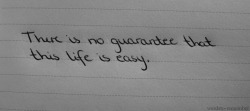 There is no guarantee that
this life is easy.